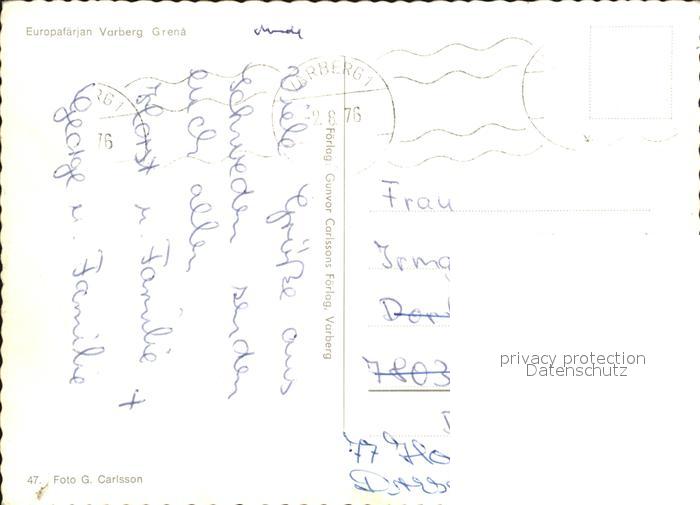 Europafärjan Varberg Grenå
VARBERG 1
2.8.76
RG 1
76
Viele Grüße aus
Schweden senden
euch allen
Horst u. Familie +
George u. Familie
Förlag: Gunvor Carlssons Förlag, Varberg
Frau
Irmg
7803
77
privacy protection
Datenschutz
47. Foto G. Carlsson